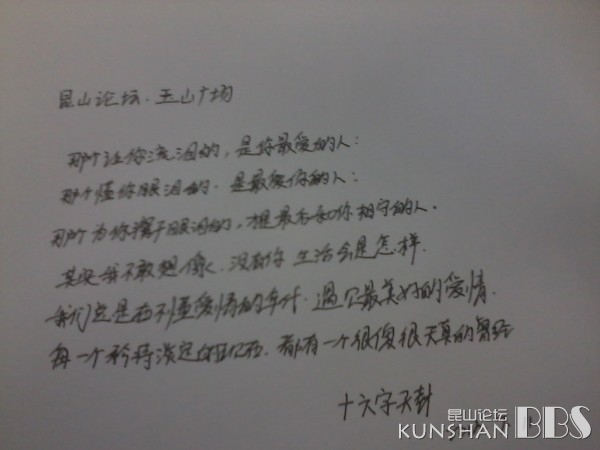 昆山论坛.玉山广场
那个让你流泪的,是你最爱的人:
那个懂你眼泪的.是最爱你的人:
那个为你擦干眼泪的,才是最后和你相守的人.
其实我不敢想像,没有你 生活会是怎样.
我们总是在不懂爱情的年代.遇见最美好的爱情.
每一个矜持淡定的现在,都有一个很傻很天真的曾经
十六字天封
昆山论坛
KUNSHAN BBS